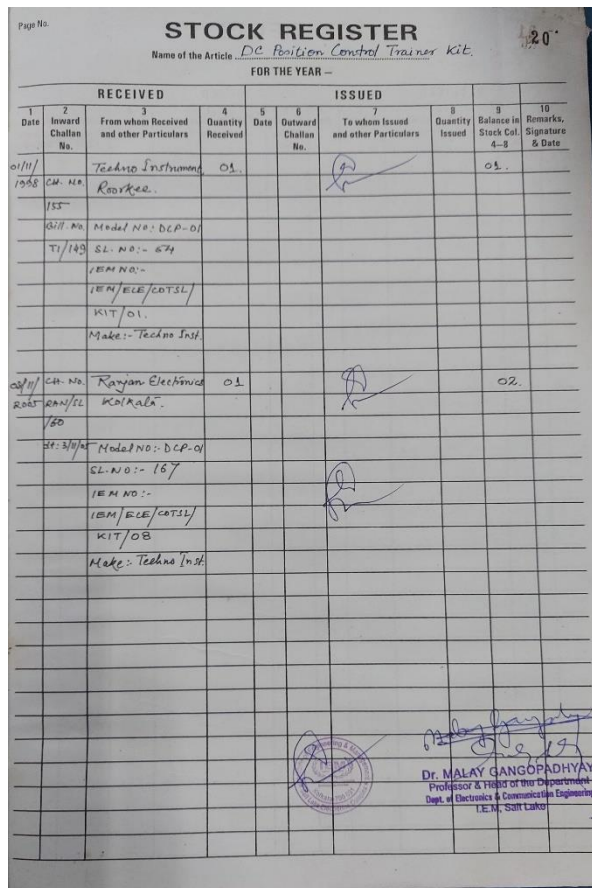 Page No.
STOCK REGISTER
20
Name of the Article DC Position Control Trainer Kit.
FOR THE YEAR –
RECEIVED ISSUED
1 2 3 4 5 6 7 8 9 10
Date Inward Challan No. From whom Received and other Particulars Quantity Received Date Outward Challan No. To whom Issued and other Particulars Quantity Issued Balance in Stock Col. 4–8 Remarks, Signature & Date
01/11/ Techno Instrument 01. 01.
1998 CH. NO. Roorkee.
155
Bill. No. Model No: DCP-01
TI/149 SL. NO:- 64
IEM NO:-
IEM/ELE/COTSL/
KIT/01.
Make:- Techno Inst.
03/11/ CH. NO. Ranjan Electronics 01 02.
2005 RAN/SL Kolkata.
/60
dt: 3/11/05 Model NO:- DCP-01
SL. NO:- 167
IEM NO:-
IEM/ELE/COTSL/
KIT/08
Make:- Techno Inst.
Dr. MALAY GANGOPADHYAY
Professor & Head of the Department
Dept. of Electronics & Communication Engineering
I.E.M, Salt Lake